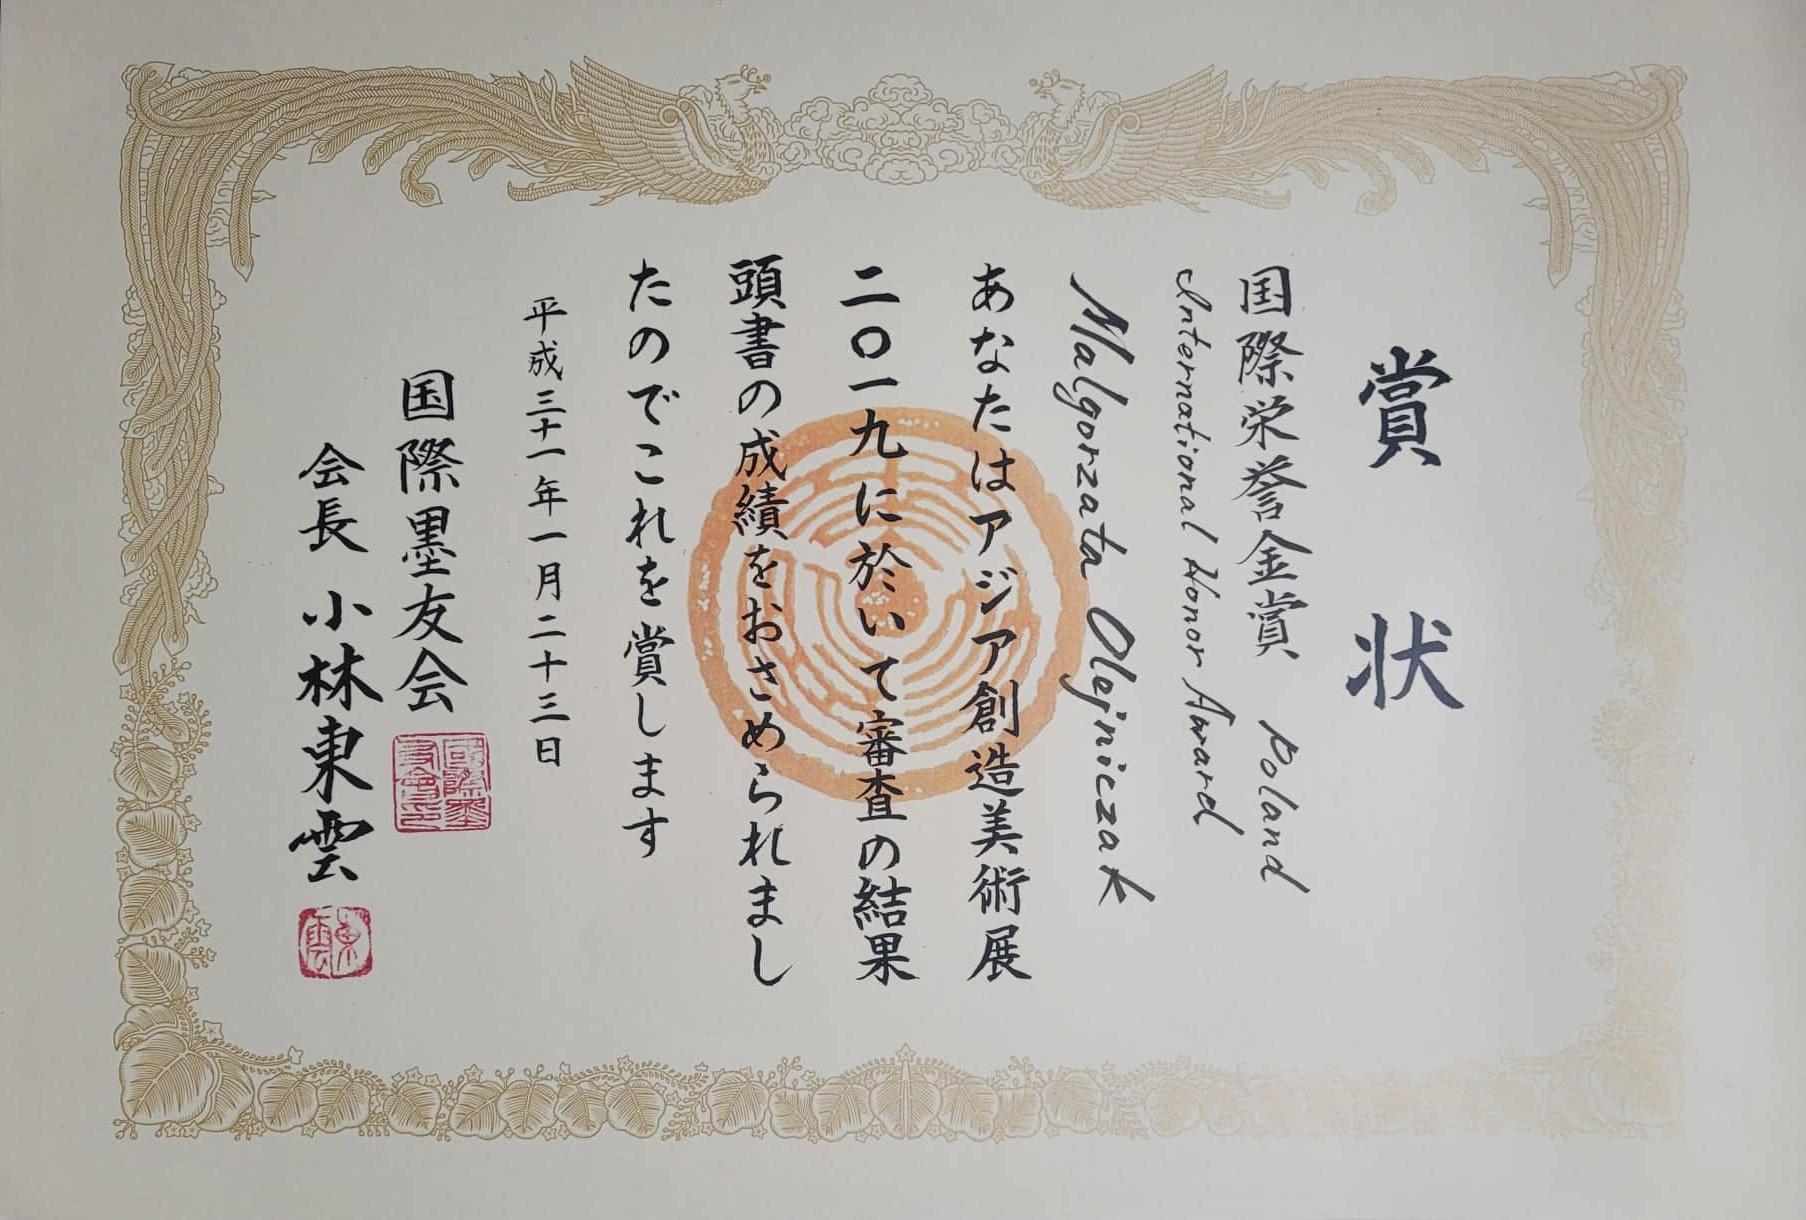 賞状
国際栄誉金賞 Poland
International Honor Award
Malgorzata Olejniczak
あなたはアジア創造美術展
二〇一九に於いて審査の結果
頭書の成績をおさめられまし
たのでこれを賞します
平成三十一年一月二十三日
国際墨友会
國際墨友会印
会長 小林東雲
東雲